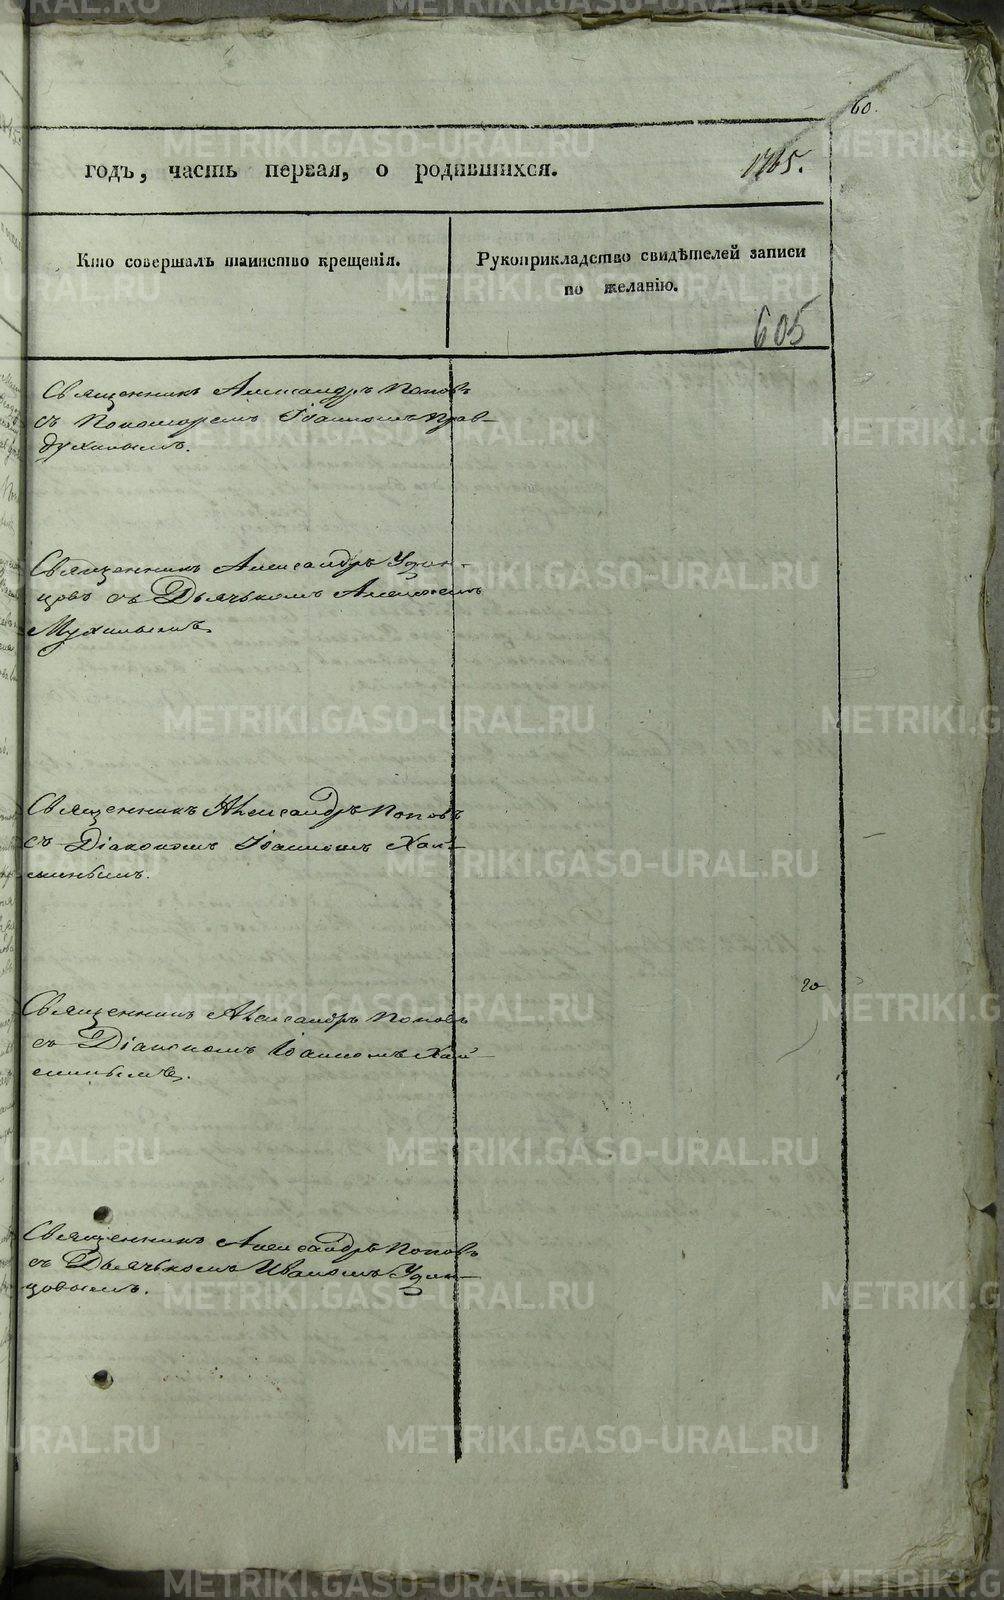 60.
годъ, часть первая, о родившихся. 1765.
Кто совершалъ таинство крещенія.
Рукоприкладство свидѣтелей записи
по желанію.
605
Священникъ Александръ Поповъ
съ Пономаремъ Іоанномъ Прав-
духинымъ.
Священникъ Александръ Удин-
цовъ съ Дьячькомъ Алексѣемъ
Мухинымъ
Священникъ Александръ Поповъ
съ Діакономъ Іоанномъ
Священникъ Александръ Поповъ
съ Діакономъ Іоанномъ
Священникъ Александръ Поповъ
съ Дьячькомъ Иваномъ Удин-
цовымъ.
METRIKI.GASO-URAL.RU